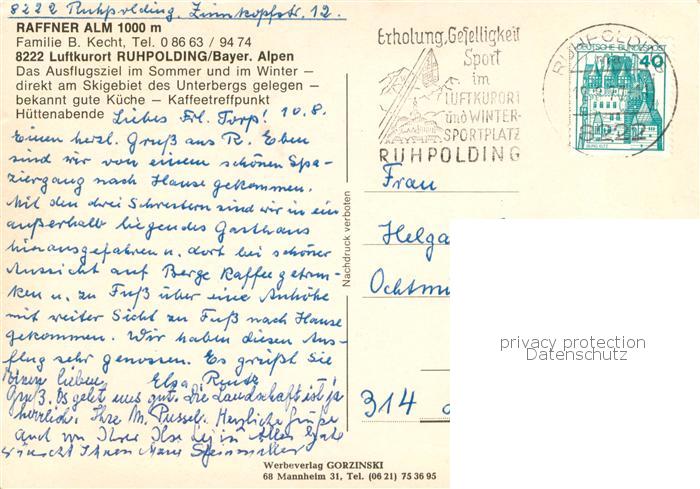 8222 Ruhpolding, Zinnkopfstr. 12.
RAFFNER ALM 1000 m
Familie B. Kecht, Tel. 0 86 63 / 94 74
8222 Luftkurort RUHPOLDING/Bayer. Alpen
Das Ausflugsziel im Sommer und im Winter –
direkt am Skigebiet des Unterbergs gelegen –
bekannt gute Küche – Kaffeetreffpunkt
Hüttenabende
Liebes Frl. Torp! 10.8.
Einen herzl. Gruß aus R. Eben
sind wir von einem schönen Spa-
ziergang nach Hause gekommen.
Mit den drei Schwestern sind wir in ein
außerhalb liegendes Gasthaus
hinausgefahren u. dort bei schöner
Aussicht auf Berge Kaffee getrun-
ken u. zu Fuß über eine Anhöhe
mit weiter Sicht zu Fuß nach Hause
gekommen. Wir haben diesen Aus-
flug sehr genossen. Es grüßt Sie
Elsa
Gruß. Es geht uns gut. Die Landschaft ist ja
herrlich. Ihre M. Herzliche Grüße
auch von Ihrer Ilse
wünscht Ihnen
Werbeverlag GORZINSKI
68 Mannheim 31, Tel. (06 21) 75 36 95
Nachdruck verboten
Erholung, Geselligkeit
Sport
im
LUFTKURORT
und WINTER-
SPORTPLATZ
RUHPOLDING
RUHPOLDING
8222
DEUTSCHE BUNDESPOST
40
BURG ELTZ
Frau
Helga
Ochtm
314
privacy protection
Datenschutz